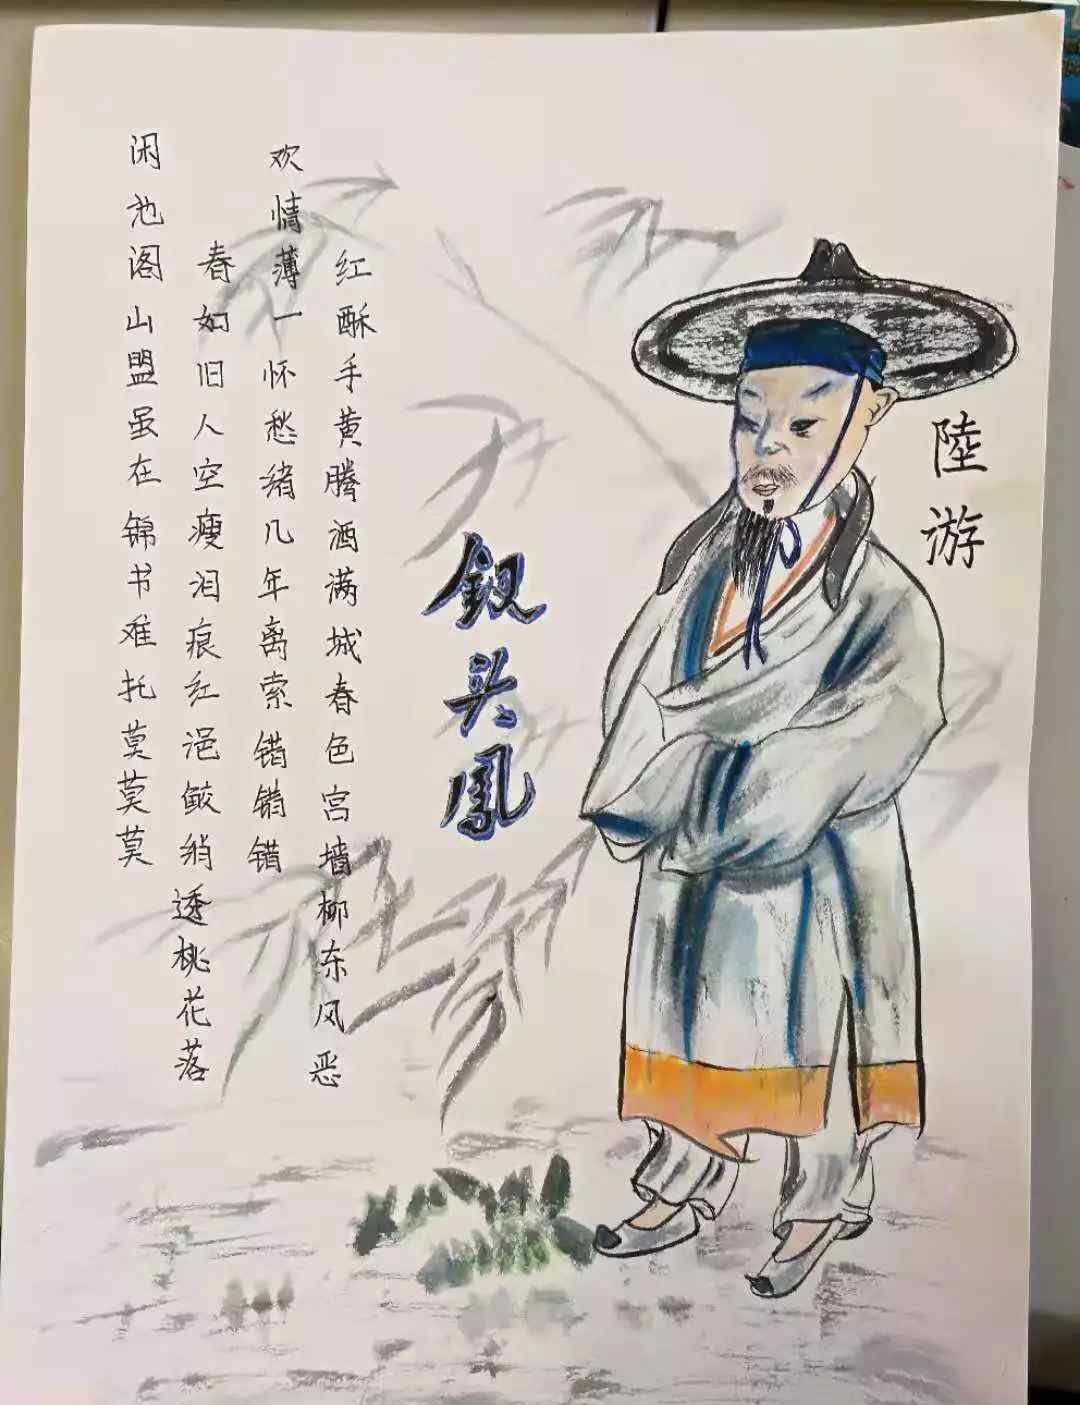 陸游
釵头鳳
红酥手黄腾酒满城春色宫墙柳东风恶
欢情薄一怀愁绪几年离索错错错
春如旧人空瘦泪痕红浥鲛绡透桃花落
闲池阁山盟虽在锦书难托莫莫莫